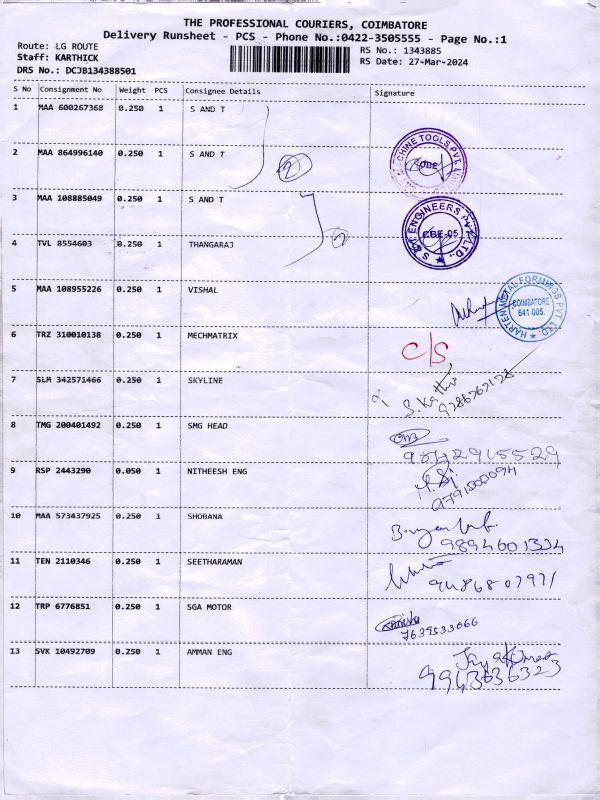 THE PROFESSIONAL COURIERS, COIMBATORE
Delivery Runsheet - PCS - Phone No.:0422-3505555 - Page No.:1
Route: LG ROUTE
RS No.: 1343885
Staff: KARTHICK
RS Date: 27-Mar-2024
DRS No.: DCJB134388501
S No Consignment No Weight PCS Consignee Details Signature
1 MAA 600267368 0.250 1 S AND T
2 MAA 864996140 0.250 1 S AND T
2
MACHINE TOOLS PVT
CBE
3 MAA 108885049 0.250 1 S AND T
ENGINEERS PVT LTD.,
CBE-05
4 TVL 8554603 0.250 1 THANGARAJ
2
5 MAA 108955226 0.250 1 VISHAL
HARTEN METAL-FORMINGS PVT. LTD.
COIMBATORE
641 005.
6 TRZ 310010138 0.250 1 MECHMATRIX
C/S
7 SLM 342571466 0.250 1 SKYLINE
8 TMG 200401492 0.250 1 SMG HEAD
9 RSP 2443290 0.050 1 NITHEESH ENG
10 MAA 573437925 0.250 1 SHOBANA
9894601334
11 TEN 2110346 0.250 1 SEETHARAMAN
12 TRP 6776851 0.250 1 SGA MOTOR
7639533066
13 SVK 10492709 0.250 1 AMMAN ENG
9943636323